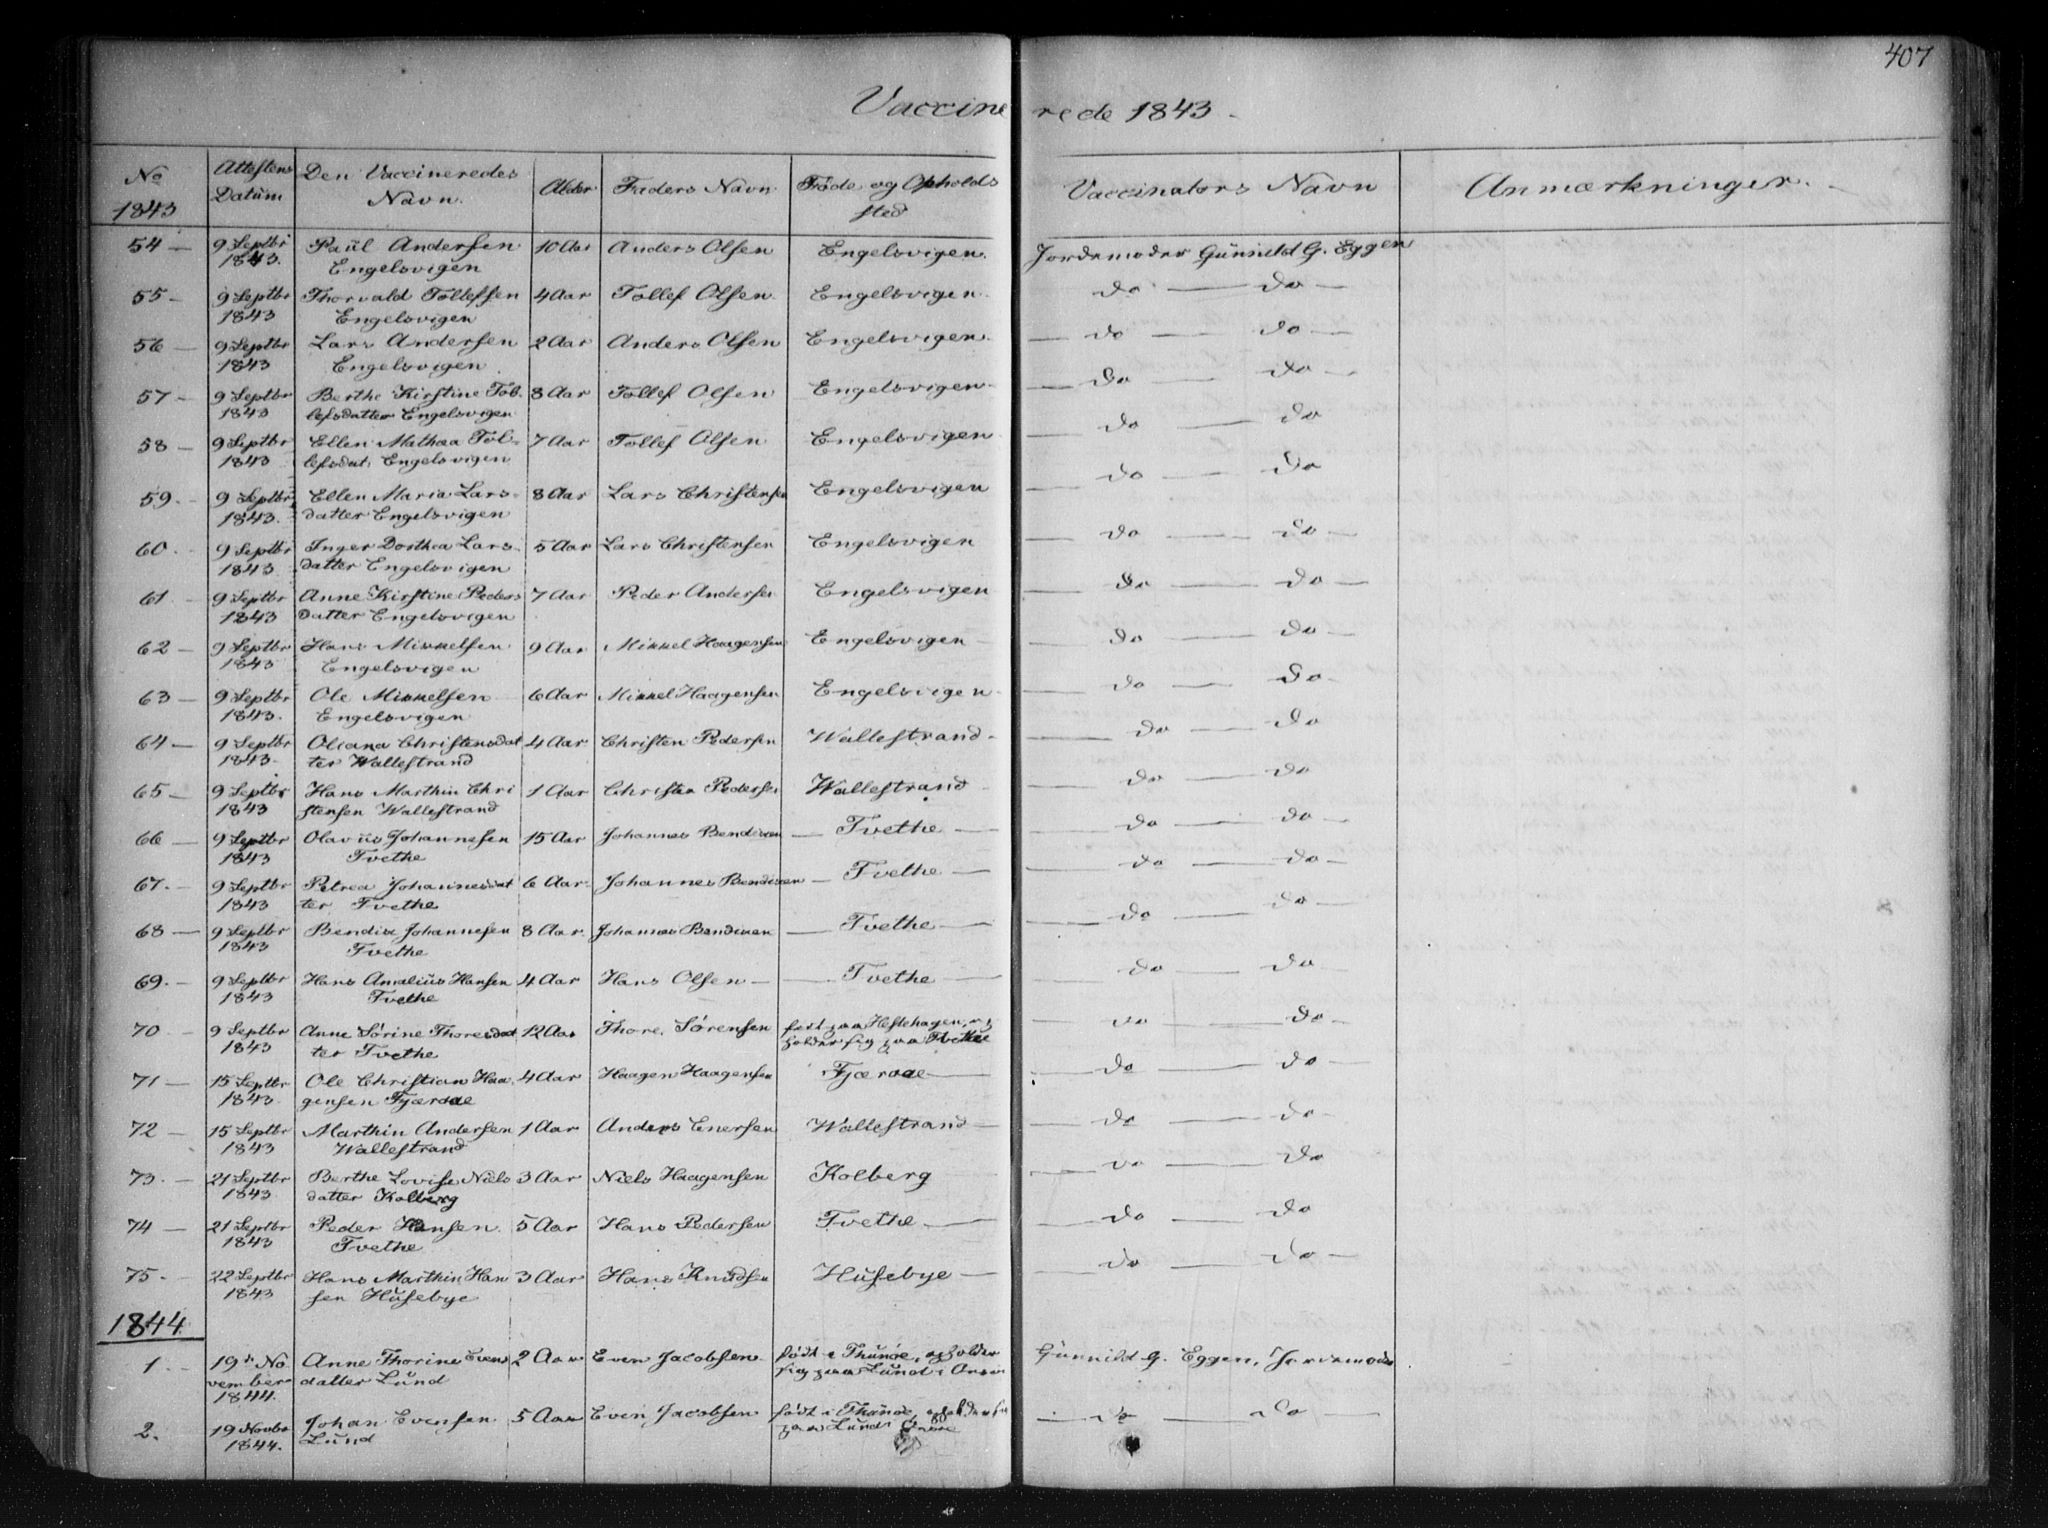 407
Vaccinerede 1843.
No 1843 | Attestens Datum | Den Vaccineredes Navn. | Alder | Faders Navn | Føde og Opholds sted | Vaccinators Navn | Anmærkninger.
54 — | 9 Septbr 1843. | Paul Andersen Engelsvigen | 10 Aar | Anders Olsen | Engelsvigen. | Jordemoder Gunnild G. Eggen
55 - | 9 Septbr 1843 | Thorvald Tollefsen Engelsvigen | 4 Aar | Tollef Olsen | Engelsvigen. | do — do —
56 — | 9 Septbr 1843 | Lars Andersen Engelsvigen | 2 Aar | Anders Olsen | Engelsvigen. | — do — do —
57 - | 9 Septbr 1843 | Berthe Kirstine Tollefsdatter Engelsvigen | 8 Aar | Tollef Olsen | Engelsvigen | — do — do —
58 — | 9 Septbr 1843 | Ellen Mathea Tollefsdat: Engelsvigen | 7 Aar | Tollef Olsen | Engelsvigen | — do — do
59. | 9 Septbr 1843. | Ellen Maria Larsdatter Engelsvigen | 8 Aar | Lars Christensen | Engelsvigen | — do — do
60. | 9 Septbr 1843 | Inger Dorthea Larsdatter Engelsvigen | 5 Aar | Lars Christensen | Engelsvigen | — do — do —
61 - | 9 Septbr 1843 | Anne Kirstine Pedersdatter Engelsvigen | 7 Aar | Peder Andersen | Engelsvigen | — do — do —
62 — | 9 Septbr 1843 | Hans Mikkelsen Engelsvigen | 9 Aar | Mikkel Haagensen | Engelsvigen | — do — do —
63 — | 9 Septbr 1843. | Ole Mikkelsen Engelsvigen | 6 Aar | Mikkel Haagensen | Engelsvigen | — do — do
64 — | 9 Septbr 1843. | Oleana Christensdatter Wallestrand | 4 Aar | Christen Pedersen | Wallestrand | — do — do
65 — | 9 Septbr 1843 | Hans Marthin Christensen Wallestrand | 1 Aar | Christen Pedersen | Wallestrand | — do — do
66 — | 9 Septbr 1843 | Olavus Johannesen Tvethe | 15 Aar | Johannes Bendixen | — Tvethe — | — do — do —
67. — | 9 Septbr 1843 | Petrea Johannesdatter Tvethe | 6 Aar | Johannes Bendixen | — Tvethe — | — do — do —
68 — | 9 Septbr 1843 | Bendix Johannesen Tvethe | 8 Aar. | Johannes Bendixen | — Tvethe — | — do — do —
69. — | 9 Septbr 1843 | Hans Amelius Hansen Tvethe | 4 Aar | Hans Olsen — | — Tvethe — | — do — do
70 — | 9 Septbr 1843 | Anne Sørine Thoresdatter Tvethe | 12 Aar | Thore Sørensen | født paa Hestehagen, og holder sig paa Tvethe | — do — do —
71 — | 15 Septbr 1843. | Ole Christian Haagensen Fjæraae | 4 Aar | Haagen Haagensen | Fjæraae — | — do — do —
72 — | 15 Septbr 1843 | Marthin Andersen Wallestrand | 1 Aar | Anders Enersen | Wallestrand — | — do — do —
73. — | 21 Septbr 1843 | Berthe Lovise Nielsdatter Kolberg | 3 Aar | Niels Haagensen | Kolberg | — do — do
74 — | 21 Septbr 1843 | Peder Hansen Tvethe | 5 Aar | Hans Pedersen | Tvethe — | — do — do
75. | 22 Septbr 1843 | Hans Marthin Hansen Husebye | 3 Aar | Hans Knudsen | Husebye — | — do — do —
1844
1. | 19de November 1844. | Anne Thorine Evensdatter Lund | 2 Aar | Even Jacobsen | født i Thunøe, opholder sig paa Lund i | Gunnild G. Eggen, Jordemoder
2. | 19 Novbr 1844. | Johan Evensen Lund | 5 Aar | Even Jacobsen | født i Thunøe, opholder sig paa Lund i | — do — do —